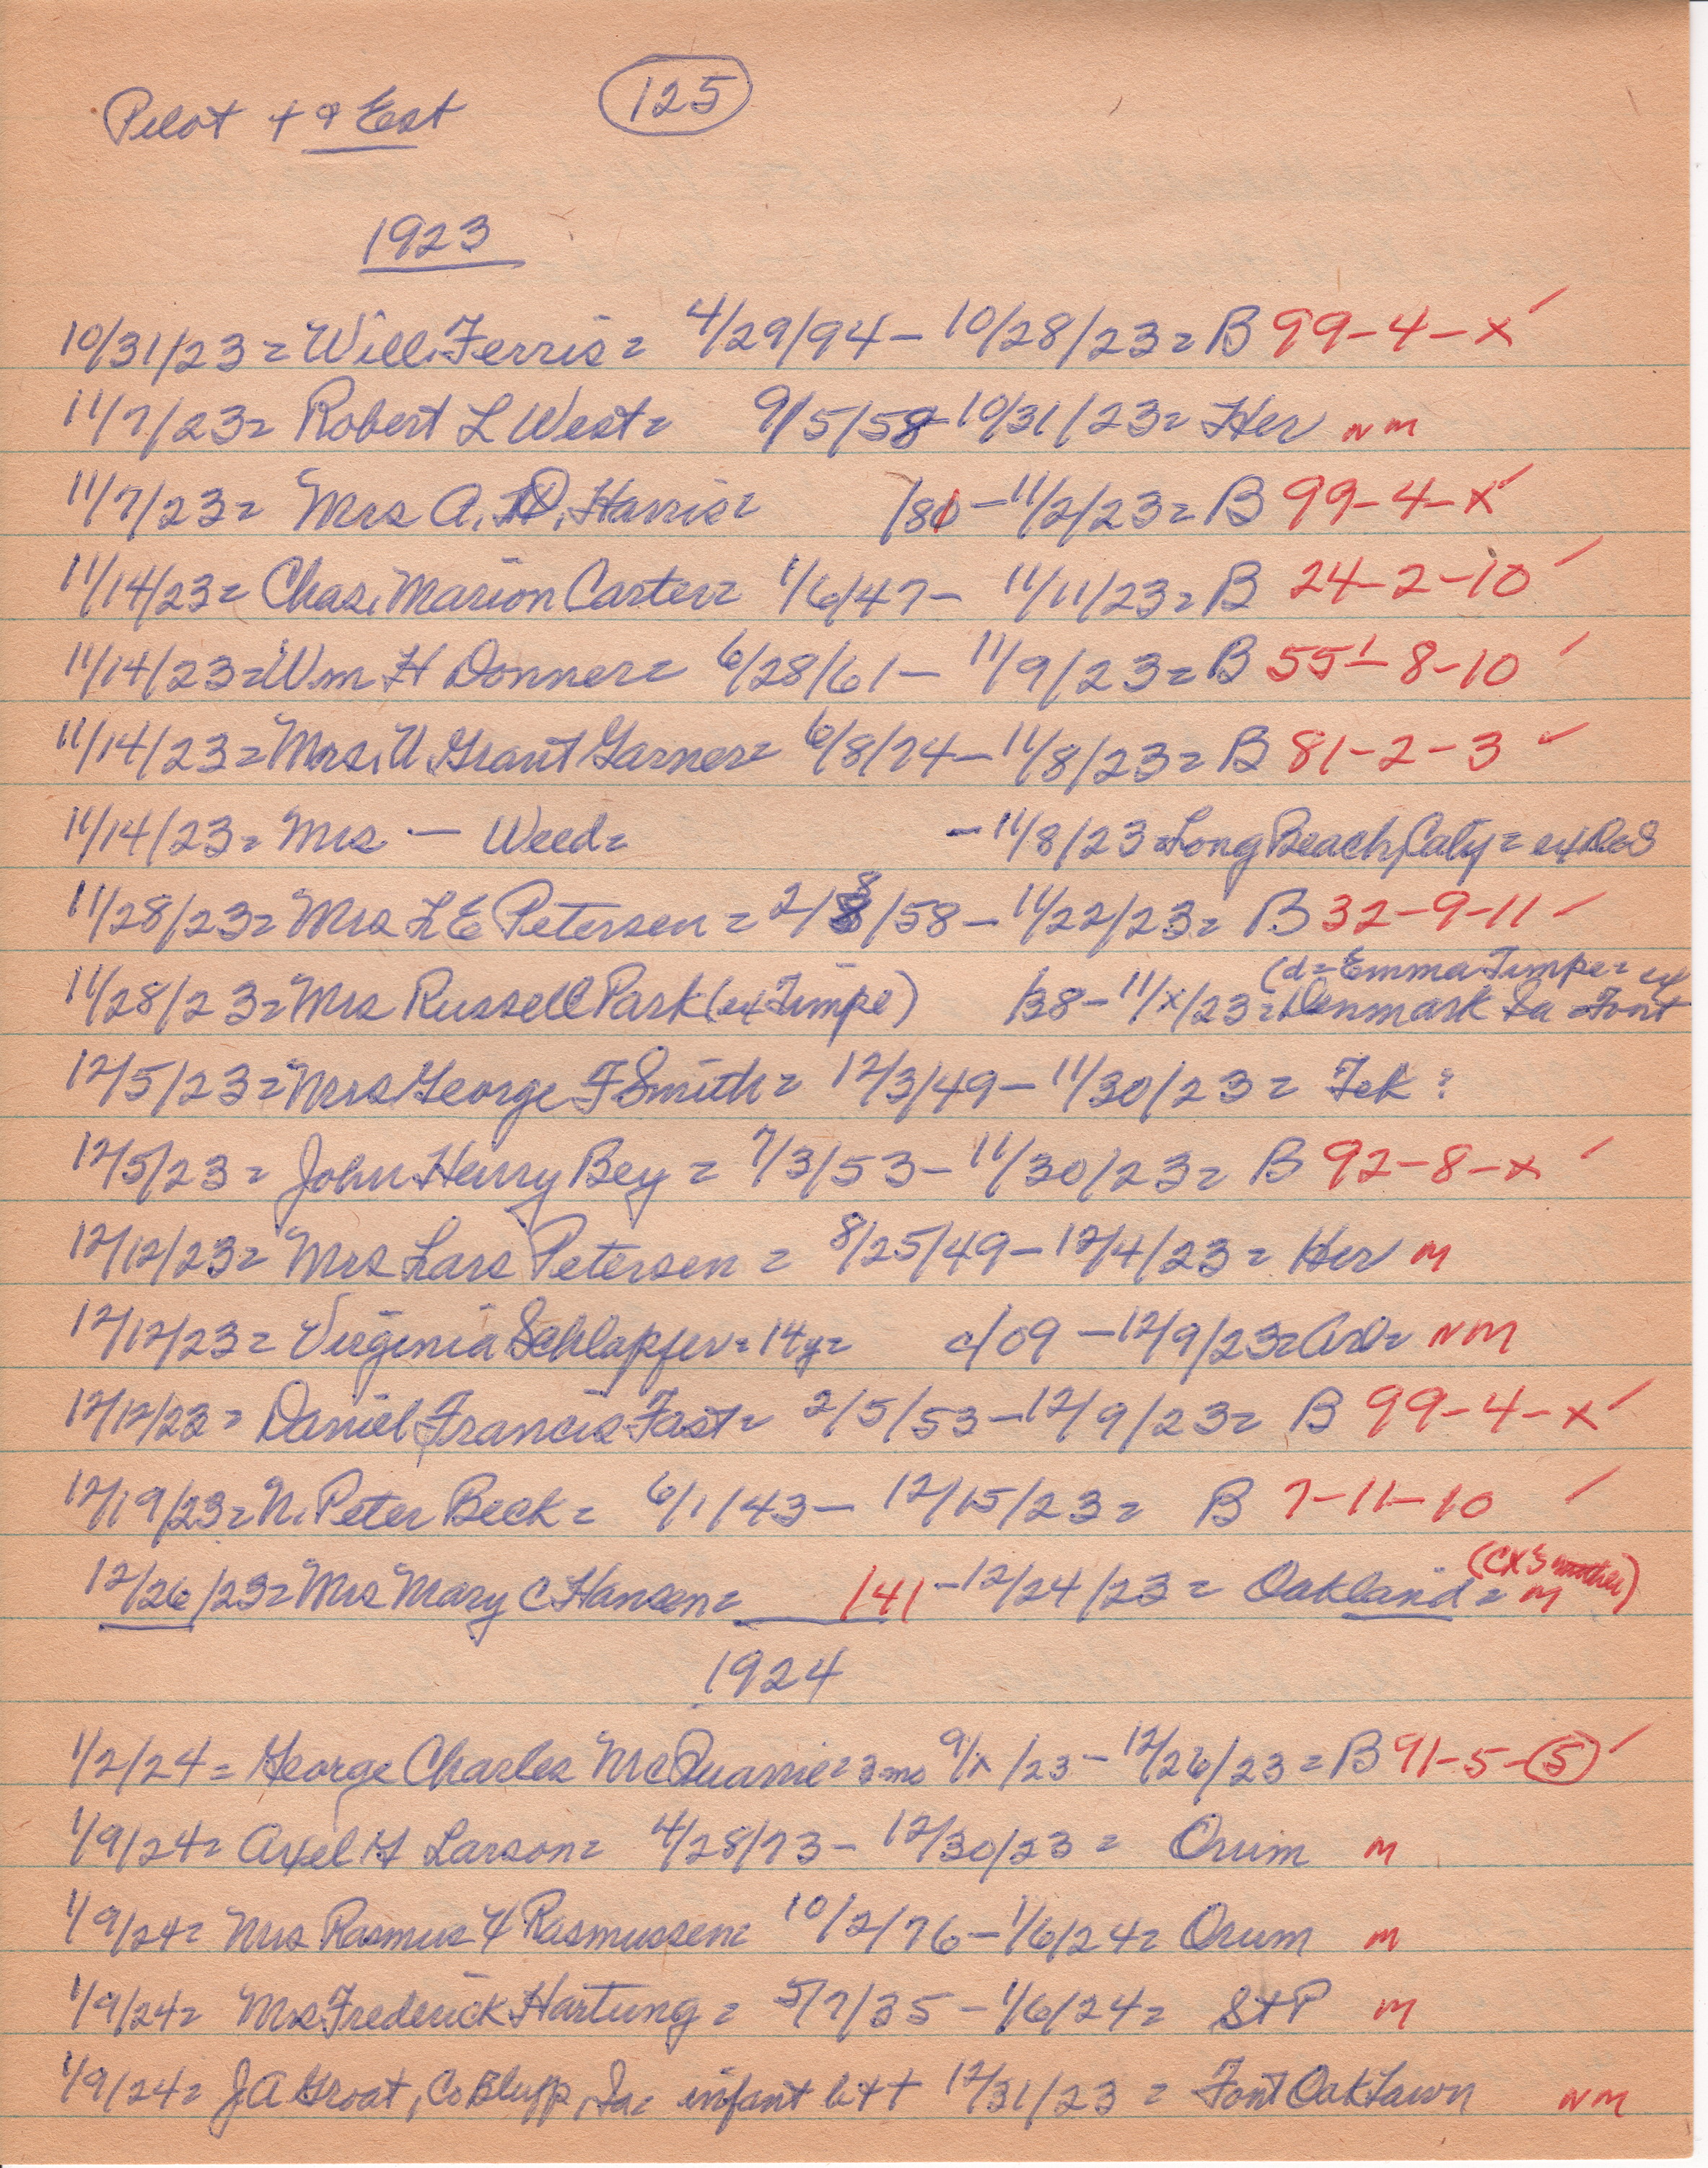 Pilot + & Est 125
1923
10/31/23 = Will Ferris = 4/29/94 - 10/28/23 = B 99-4-x ✓
11/7/23 = Robert L West = 9/5/58 - 10/31/23 = Her NM
11/7/23 = Mrs A. D. Harris = /81 - 11/2/23 = B 99-4-x ✓
11/14/23 = Chas. Marion Carter = 1/6/47 - 11/11/23 = B 24-2-10 ✓
11/14/23 = Wm H Donner = 6/28/61 - 11/9/23 = B 55-8-10 ✓
11/14/23 = Mrs. U. Grant Garner = 6/8/74 - 11/8/23 = B 81-2-3 ✓
11/14/23 = Mrs — Weed = - 11/8/23 = Long Beach, Caly =
11/28/23 = Mrs L E Petersen = 2/8/58 - 11/22/23 = B 32-9-11 ✓
(d = Emma Timpe = ex
11/28/23 = Mrs Russell Park (ex Timpe) /38 - 11/x/23 = Denmark Ia = Font
12/5/23 = Mrs George F Smith = 12/3/49 - 11/30/23 = Tek ?
12/5/23 = John Henry Bey = 7/3/53 - 11/30/23 = B 92-8-x ✓
12/12/23 = Mrs Lars Petersen = 8/25/49 - 12/4/23 = Her M
12/12/23 = Virginia Schlapfer = 14y = c/09 - 12/9/23 = NM
12/12/23 = Daniel Francis Fast = 2/5/53 - 12/9/23 = B 99-4-x ✓
12/19/23 = N. Peter Beck = 6/1/43 - 12/15/23 = B 7-11-10 ✓
12/26/23 = Mrs Mary C Hansen = /41 - 12/24/23 = Oakland = M
1924
1/2/24 = George Charles McQuanie = 3 mo 9/x/23 - 12/26/23 = B 91-5-5 ✓
1/9/24 = Axel G Larson = 4/28/73 - 12/30/23 = Orum M
1/9/24 = Mrs Rasmus Y Rasmussen = 10/2/76 - 1/6/24 = Orum M
1/9/24 = Mrs Frederick Hartung = 5/7/35 - 1/6/24 = St P M
1/9/24 = J A Groat, Co Bluff, Ia = infant b + + 12/31/23 = Font Oak Lawn NM